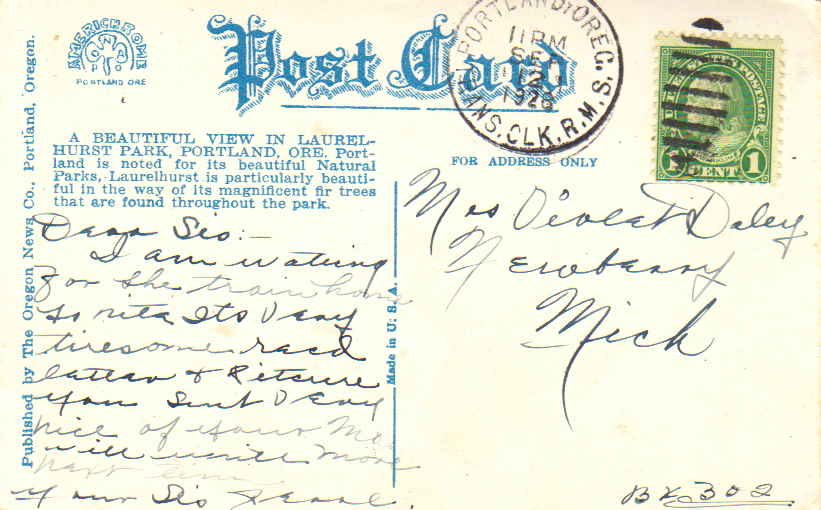 AMERICHROME
PORTLAND ORE
Post Card
PORTLAND, OREG.
11 PM
SEP
TRANS. CLK. R.M.S.
UNITED STATES POSTAGE
1 CENT 1
Published by The Oregon News Co., Portland, Oregon.
A BEAUTIFUL VIEW IN LAUREL-
HURST PARK, PORTLAND, ORE. Port-
land is noted for its beautiful Natural
Parks, Laurelhurst is particularly beauti-
ful in the way of its magnificent fir trees
that are found throughout the park.
FOR ADDRESS ONLY
Made in U. S. A.
Dear Sis:—
I am wating
for the train home
to nite Its Very
tiresome
lattar & Pitcure
you sent Very
nice of your
will write more
next time
Your Sis
Mrs Violat Daley
Newberry
Mich
BX 302